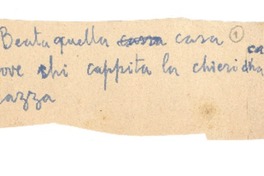 Beata quella casa casa ① ca
ove chi cappita la chieri
azza